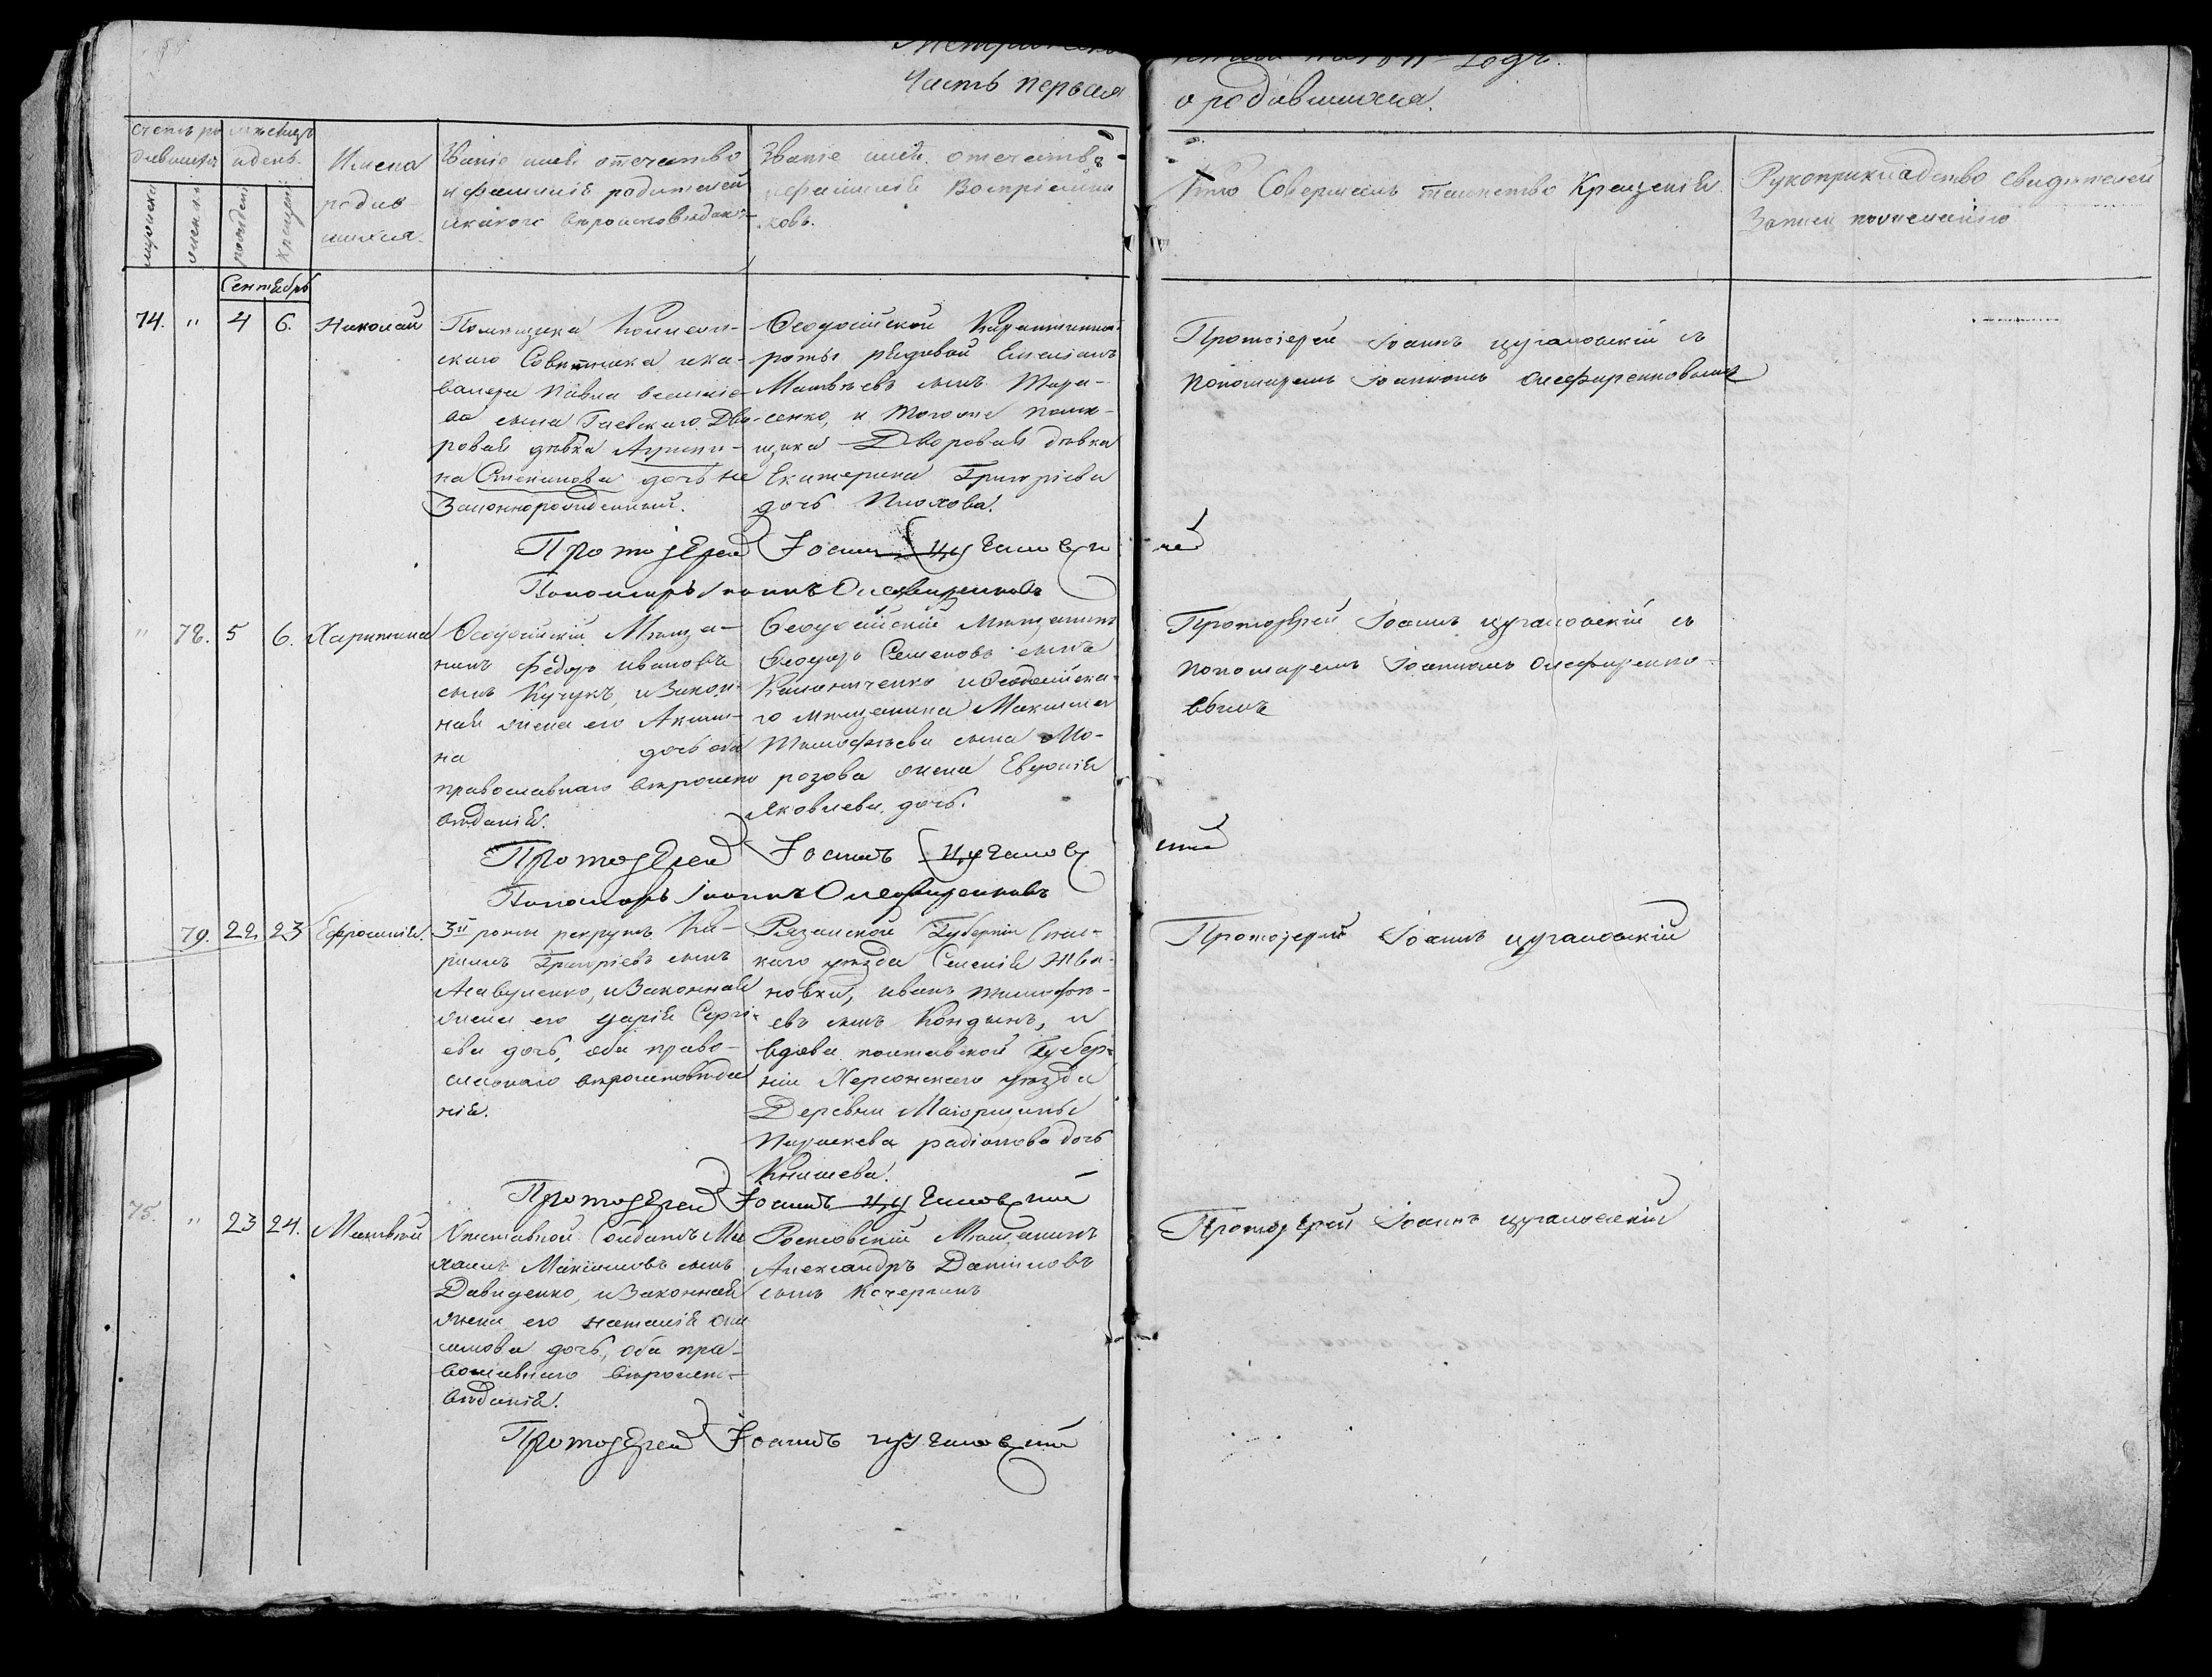 Часть первая
о родившихся.
Счетъ ро
дившихся
мужеска
женска
мѣсяцъ
и день.
рожден
крещен
Имена
родив
шихся.
Званіе имя отечество
и фамилія родителей
и какого вѣроисповѣданія
Званіе имя. отечество
и фамилія Воспріемни
ковъ.
Кто Совершалъ таинство Крещенія
Рукоприкладство свидѣтелей
Записи по желанію
Сентябрь
74. " 4 6. Николай
Помѣщика Коллеж-
скаго Совѣтника и ка-
валера Павла
ва сына Гаевскаго Дво-
ровая дѣвка
на Степанова дочь не
Законнорожденный.
Ѳеодосійской Карантинной
роты рядовой Емеліанъ
Матвѣевъ сынъ Тара-
сенко, и тогоже помѣ-
щика Дворовая дѣвка
Екатерина Григоріева
дочь Плохова.
Протоіерей Іоаннъ Цугановскій съ
пономаремъ Іоанномъ Олефиренковымъ
Протоіерей Іоаннъ Цугановскій
Пономарь Іоаннъ Олефиренковъ
" 78. 5 6. Харитина
Ѳеодосійскій Мѣща-
нинъ Ѳёдоръ Ивановъ
сынъ Кучукъ, и Закон-
ная жена его Акили-
на дочь оба
православнаго вѣроиспо
вѣданія.
Ѳеодосійскій мѣщанинъ
Ѳеодоръ Семеновъ сынъ
и Ѳеодосійска-
го мѣщанина Максима
Тимофѣева сына Мо-
розова жена Евдокія
Яковлева дочь.
Протоіерей Іоаннъ Цугановскій съ
пономаремъ Іоанномъ Олефиренко-
вымъ
Протоіерей Іоаннъ Цугановскій
Пономарь Іоаннъ Олефиренковъ
79. 22. 23 Ефросинія.
3й роты рекрутъ Ки-
рилъ Григоріевъ сынъ
и Законная
жена его Дарія Сергі-
ева дочь, оба право-
славнаго вѣроисповѣда
нія.
Рязанской Губерніи
каго уѣзда Селенія Ива-
новки, Иванъ Тимофѣ-
евъ сынъ Кондынъ, и
вдова полтавской Губер-
ніи Херсонскаго уѣзда
Деревни Маіорщины
Параскева Радіонова дочь
Книшева.
Протоіерей Іоаннъ Цугановскій
Протоіерей Іоаннъ Цугановскій
75. " 23 24. Матвей
Отставной Солдатъ Ми
хаилъ Максимовъ сынъ
Давиденко, и Законная
жена его Наталія Они
симова дочь, оба пра-
вославнаго вѣроиспо-
вѣданія.
Ростовскій Мѣщанинъ
Александръ Даниловъ
сынъ Кочергинъ
Протоіерей Іоаннъ Цугановскій
Протоіерей Іоаннъ Цугановскій